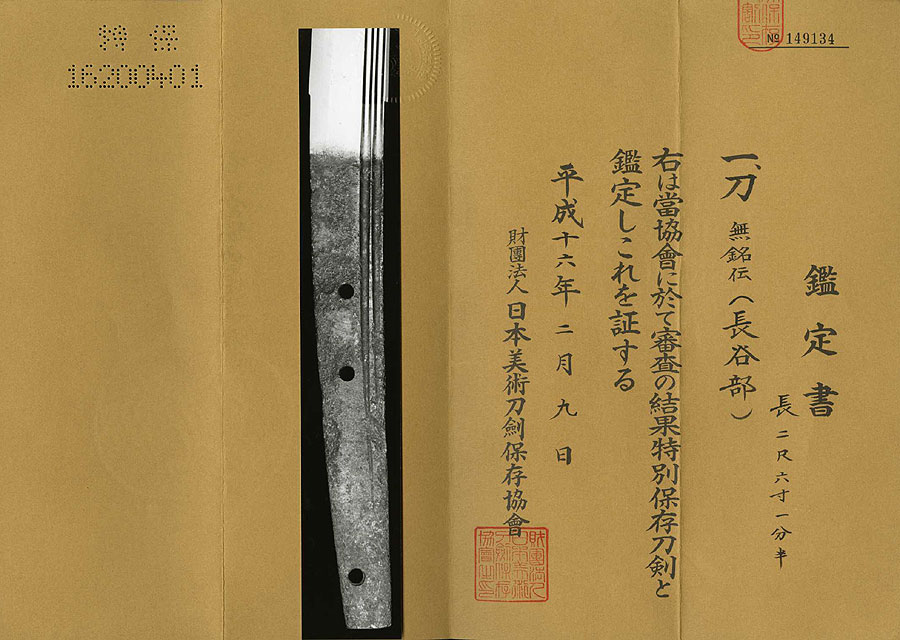 特 保
16200401
№ 149134
鑑定書
長二尺六寸一分半
一、刀 無銘伝(長谷部)
右は當協會に於て審査の結果特別保存刀剣と
鑑定しこれを証する
平成十六年二月九日
財團法人 日本美術刀劍保存協會